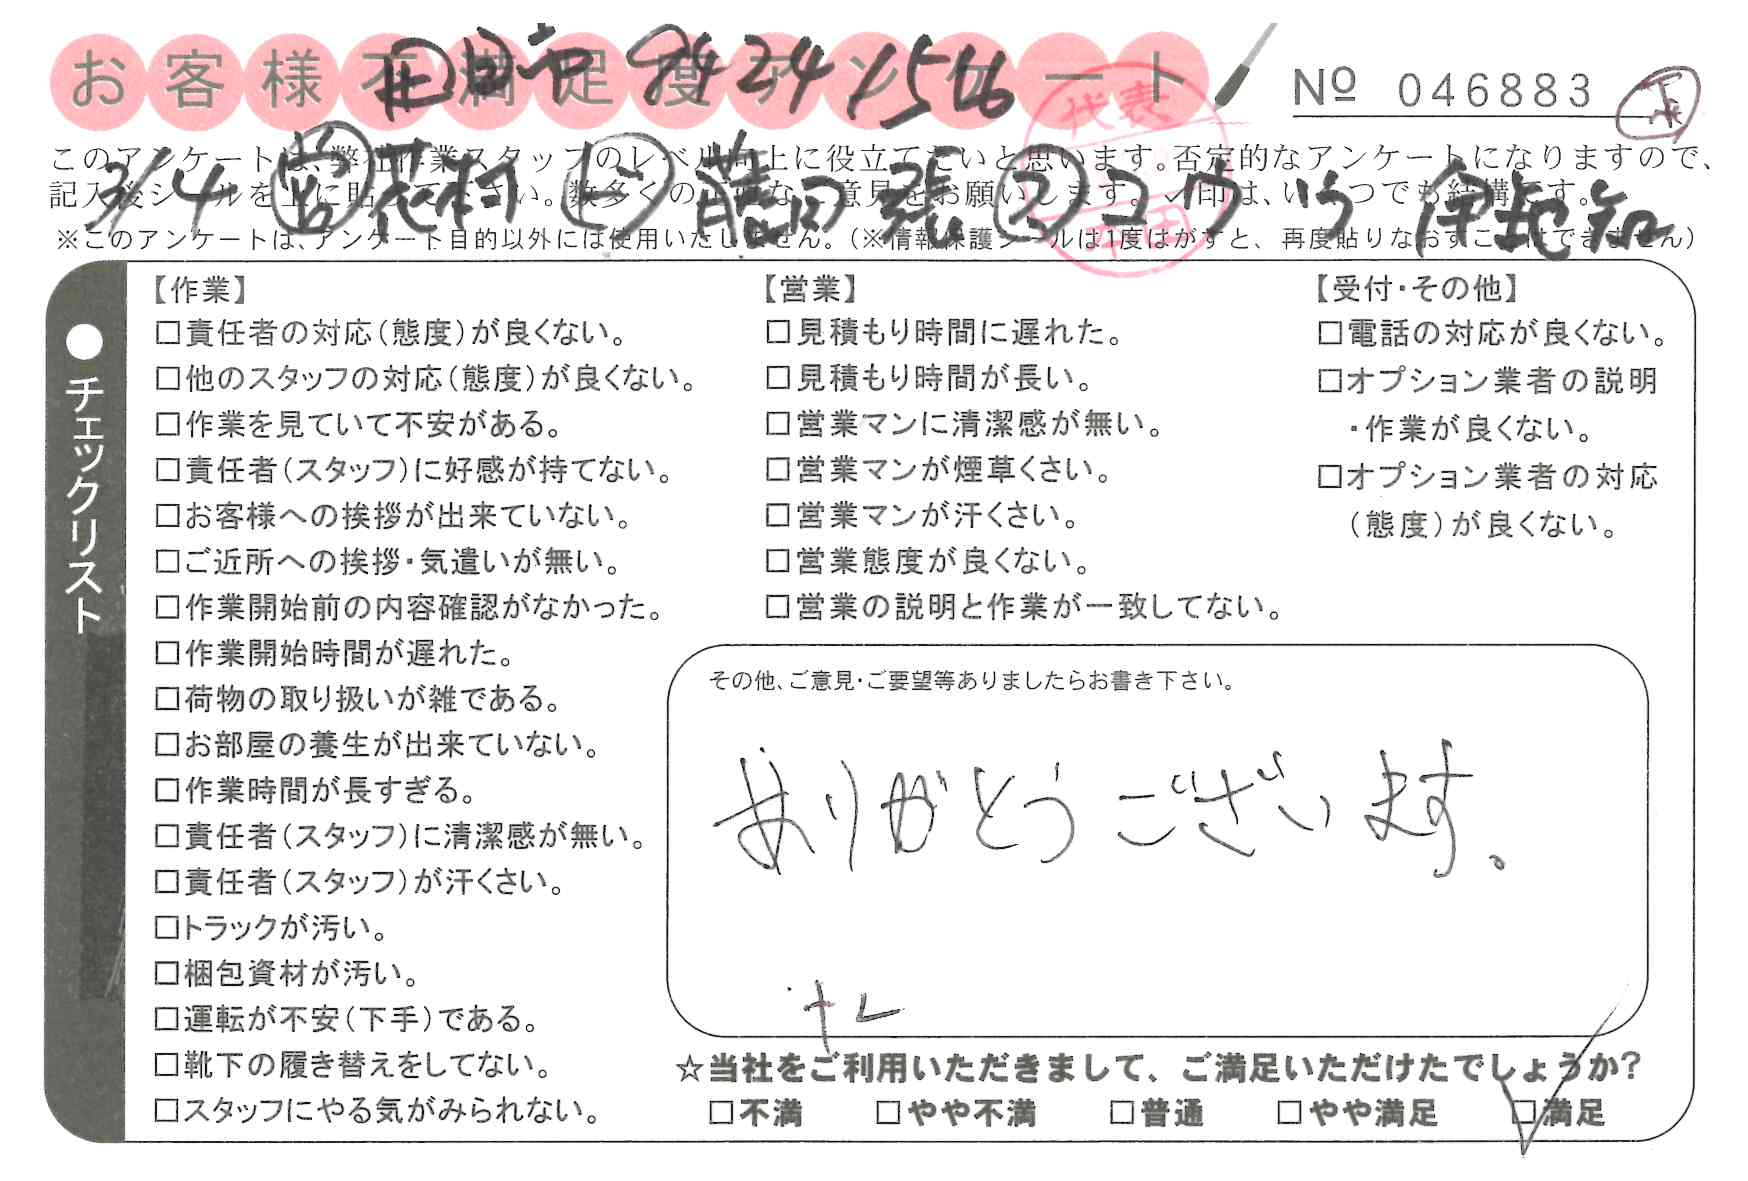 お客様不満足度アンケート
No 046883
このアンケートは、弊社作業スタッフのレベル向上に役立てたいと思います。否定的なアンケートになりますので、
記入後シールを上に貼って下さい。数多くの正直なご意見をお願いします。✓印は、いくつでも結構です。
※このアンケートは、アンケート目的以外には使用いたしません。(※情報保護シールは1度はがすと、再度貼りなおすことはできません)
8424 1566
3/4 営 花村 藤田 張 コウ 伊地知
代表
●チェックリスト
【作業】
□責任者の対応(態度)が良くない。
□他のスタッフの対応(態度)が良くない。
□作業を見ていて不安がある。
□責任者(スタッフ)に好感が持てない。
□お客様への挨拶が出来ていない。
□ご近所への挨拶・気遣いが無い。
□作業開始前の内容確認がなかった。
□作業開始時間が遅れた。
□荷物の取り扱いが雑である。
□お部屋の養生が出来ていない。
□作業時間が長すぎる。
□責任者(スタッフ)に清潔感が無い。
□責任者(スタッフ)が汗くさい。
□トラックが汚い。
□梱包資材が汚い。
□運転が不安(下手)である。
□靴下の履き替えをしてない。
□スタッフにやる気がみられない。
【営業】
□見積もり時間に遅れた。
□見積もり時間が長い。
□営業マンに清潔感が無い。
□営業マンが煙草くさい。
□営業マンが汗くさい。
□営業態度が良くない。
□営業の説明と作業が一致してない。
【受付・その他】
□電話の対応が良くない。
□オプション業者の説明
・作業が良くない。
□オプション業者の対応
(態度)が良くない。
その他、ご意見・ご要望等ありましたらお書き下さい。
ありがとうございます。
ナレ
☆当社をご利用いただきまして、ご満足いただけたでしょうか?
□不満 □やや不満 □普通 □やや満足 □満足